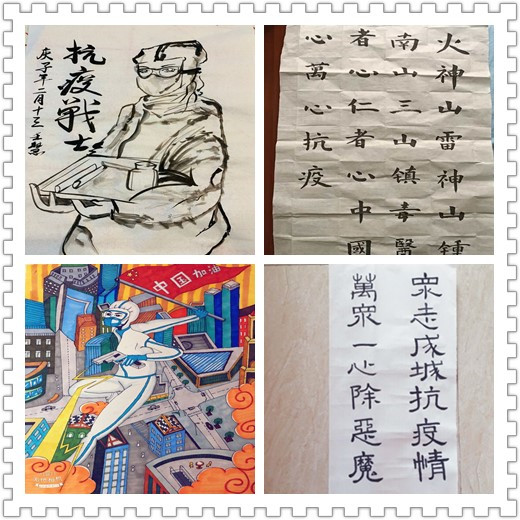 抗疫戰士
庚子年二月十三
火神山雷神山鍾
南山三山鎮毒醫
者心仁者心中國
心萬心抗疫
中国加油
衆志成城抗疫情
萬衆一心除惡魔